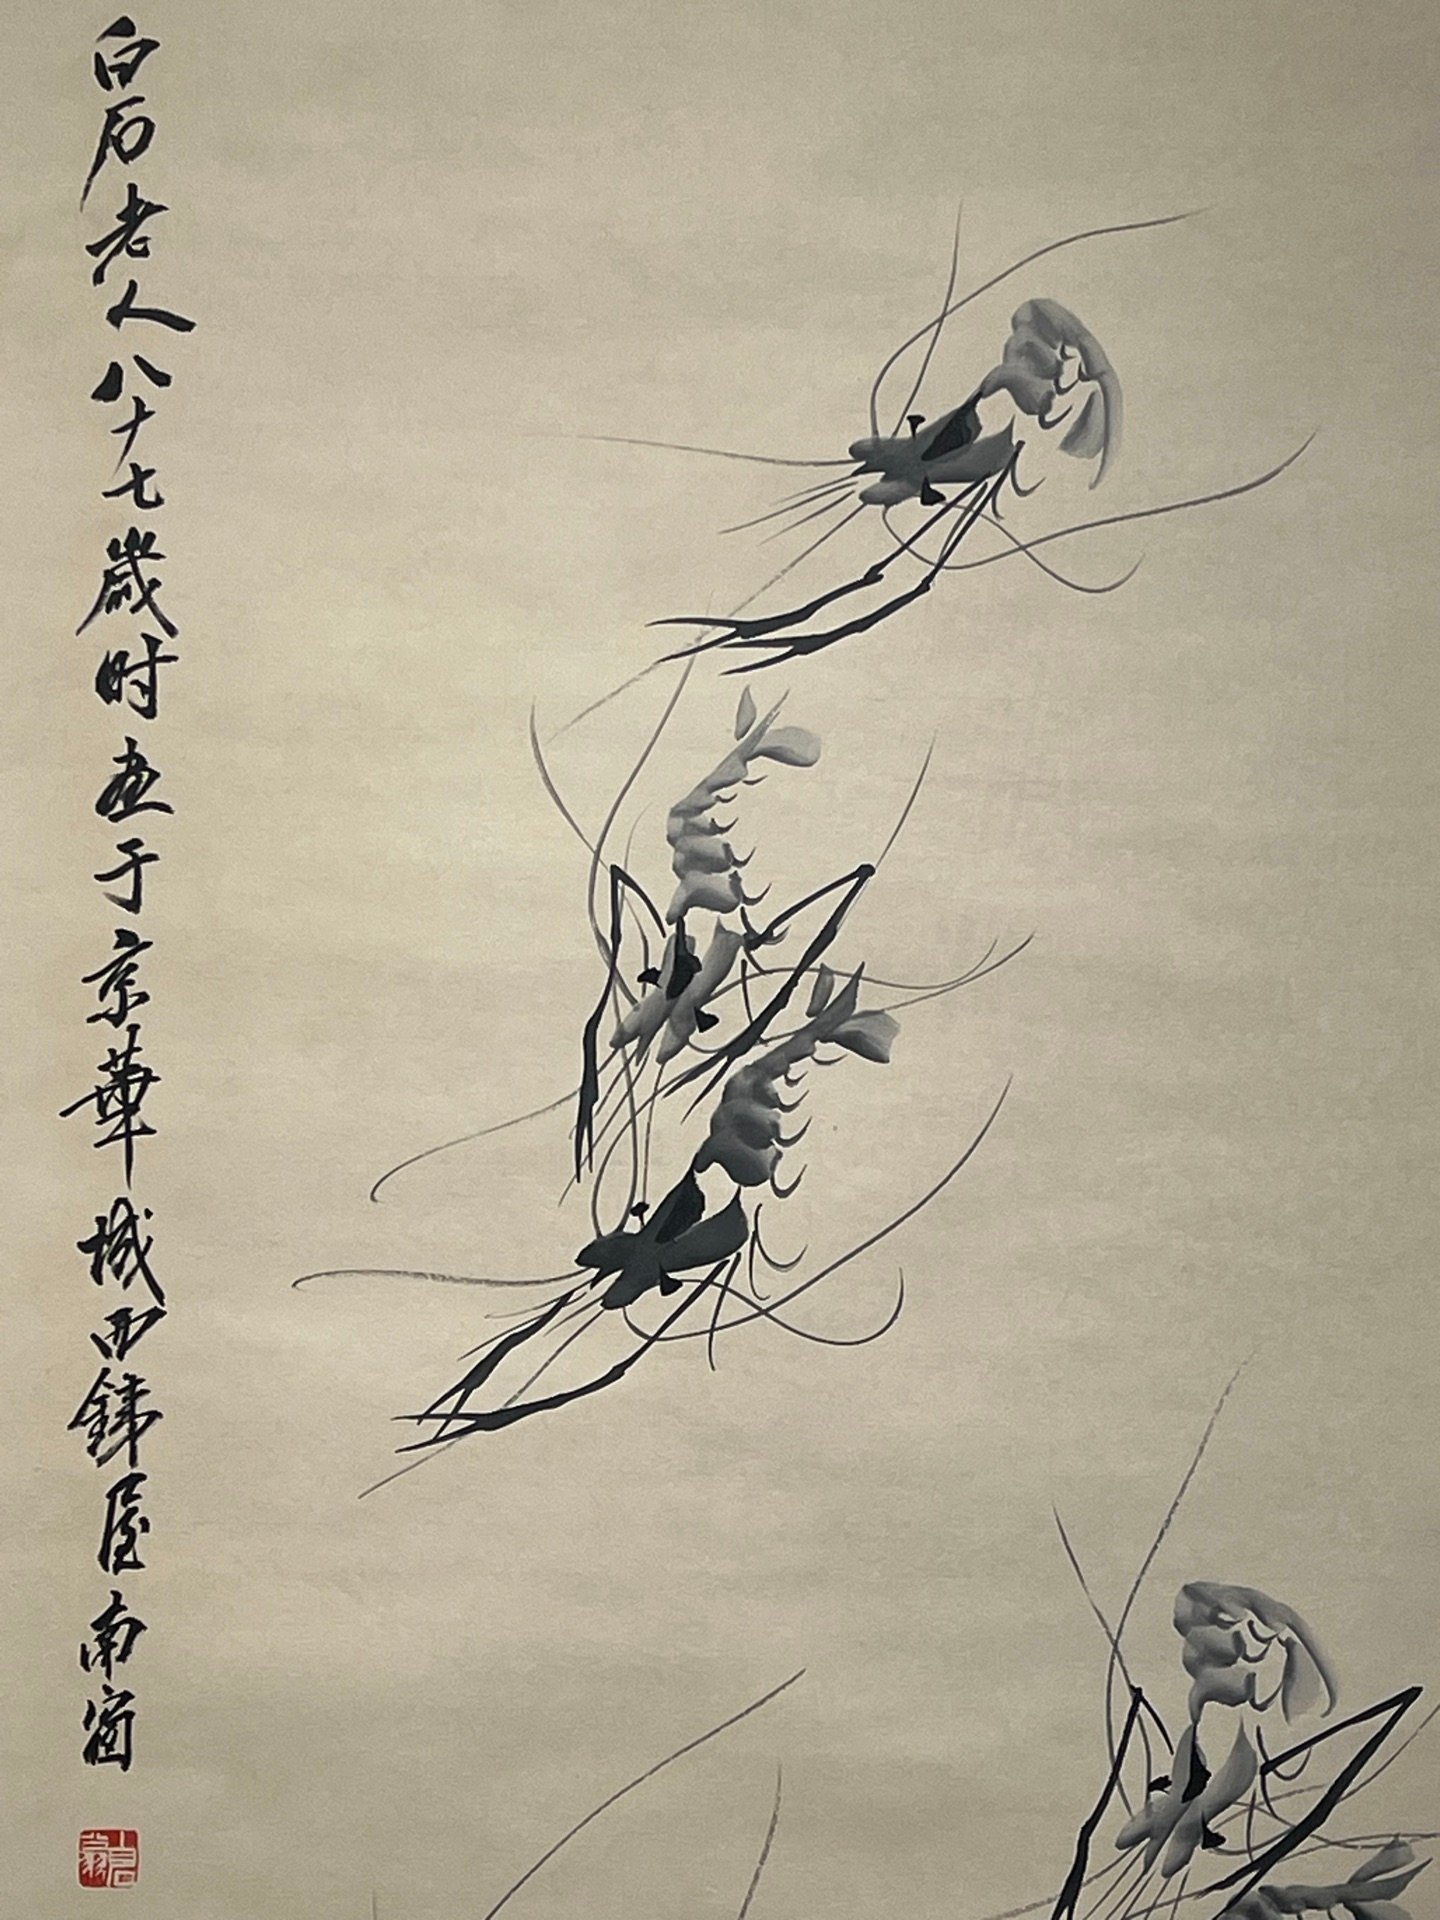 白石老人八十七歲时画于京華城西鐵屋南窗
白石翁